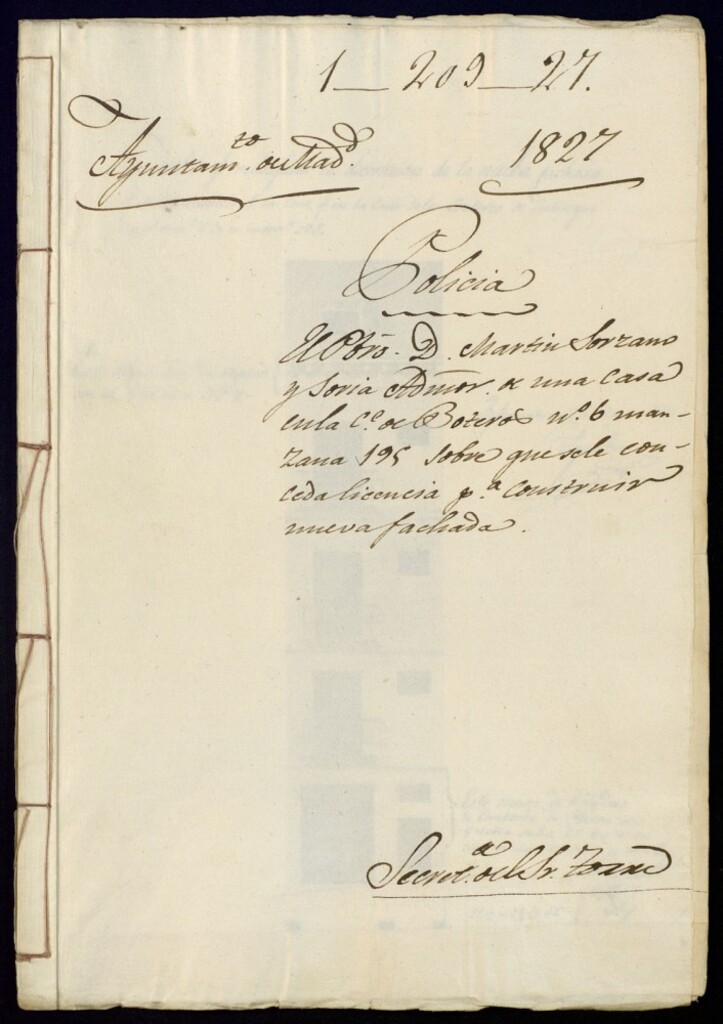 1—209—27.
Ayuntam.to de Mad.d
1827
Policia
El Pbro. D. Martin Sorzano
y Soria Admor. de una casa
en la C.e de Boteros nº. 6 man-
zana 195 sobre que se le con-
ceda licencia p.a construir
nueva fachada.
Secret.a del Sr.